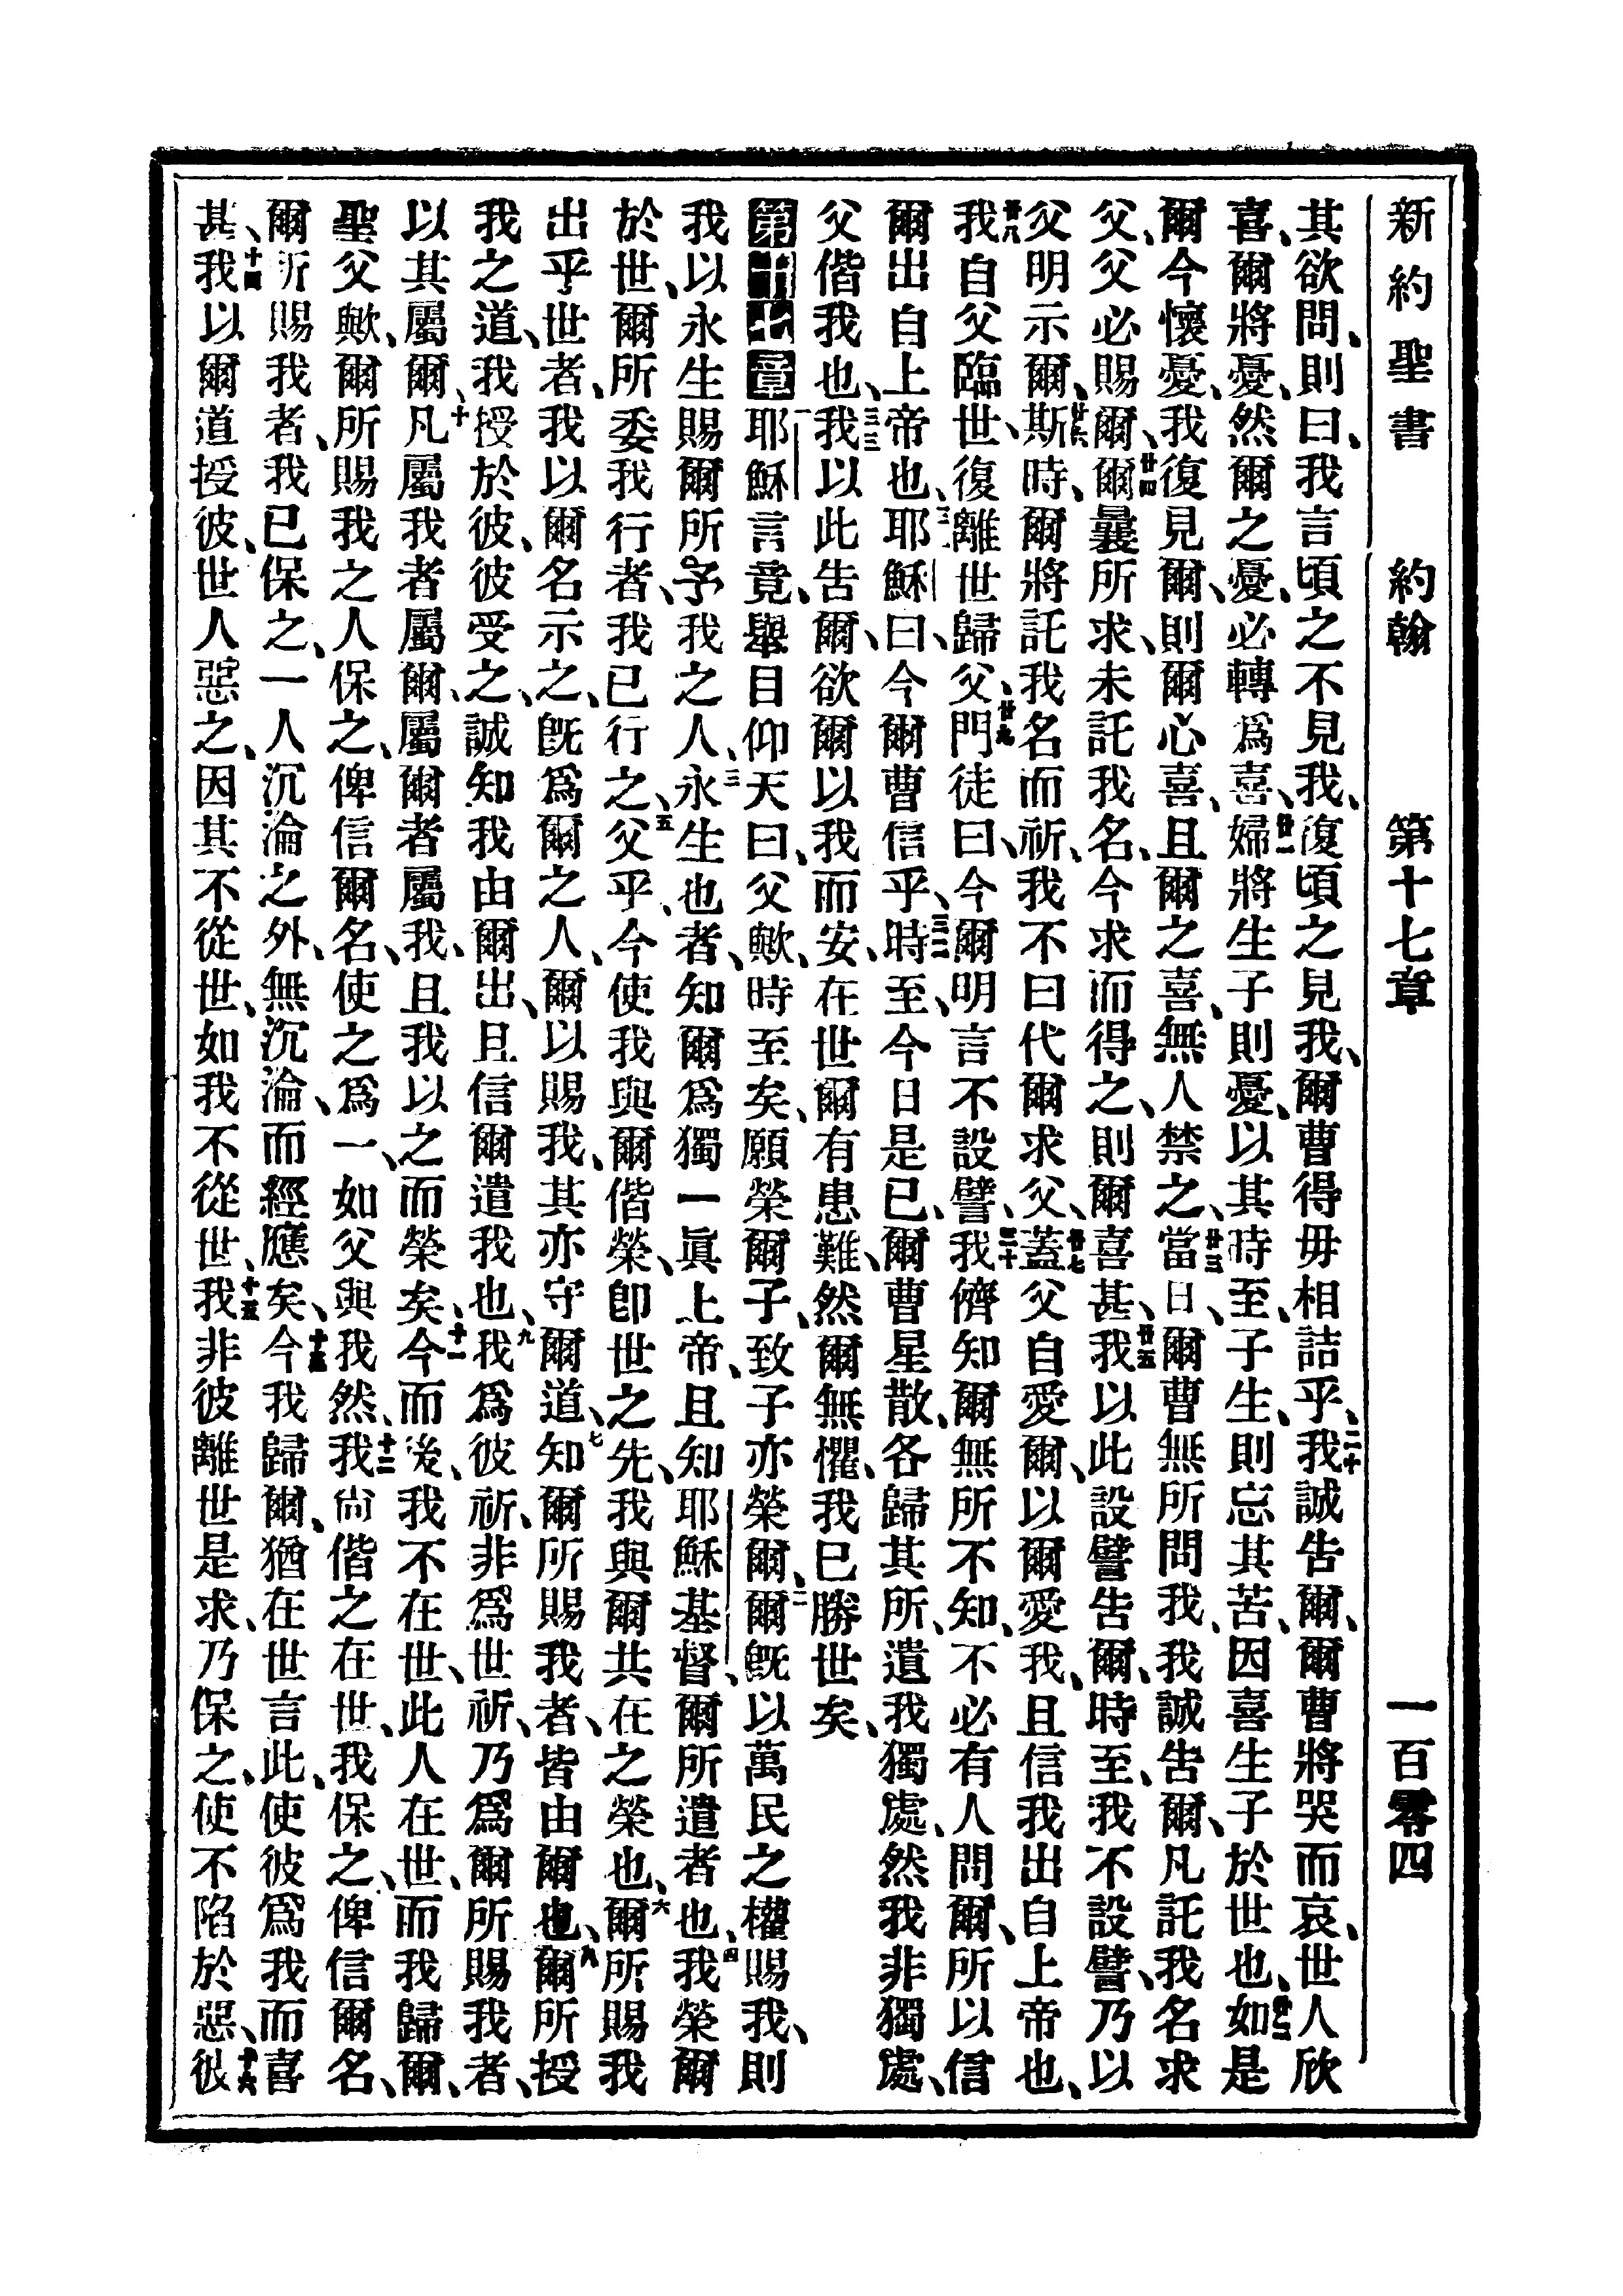 新約聖書　約翰　第十七章　一百零四
其欲問、則曰、我言頃之不見我、復頃之見我、爾曹得毋相詰乎、二十我誠告爾、爾曹將哭而哀、世人欣
喜、爾將憂、然爾之憂、必轉爲喜、廿一婦將生子則憂、以其時至、子生、則忘其苦、因喜生子於世也、廿二如是
爾今懷憂、我復見爾、則爾心喜、且爾之喜、無人禁之、廿三當日、爾曹無所問我、我誠告爾、凡託我名求
父、父必賜爾、廿四爾曩所求、未託我名、今求而得之、則爾喜甚、廿五我以此設譬告爾、時至、我不設譬、乃以
父明示爾、廿六斯時、爾將託我名而祈、我不曰代爾求父、廿七蓋父自愛爾、以爾愛我、且信我出自上帝也、
廿八我自父臨世、復離世歸父、廿九門徒曰、今爾明言不設譬、三十我儕知爾無所不知、不必有人問爾、所以信
爾出自上帝也、三一耶穌曰、今爾曹信乎、三二時至、今日是已、爾曹星散、各歸其所、遺我獨處、然我非獨處、
父偕我也、三三我以此告爾、欲爾以我而安、在世爾有患難、然爾無懼、我已勝世矣、
第十七章　一耶穌言竟、舉目仰天曰、父歟、時至矣、願榮爾子、致子亦榮爾、二爾旣以萬民之權賜我、則
我以永生賜爾所予我之人、三永生也者、知爾爲獨一眞上帝、且知耶穌基督、爾所遣者也、四我榮爾
於世、爾所委我行者、我已行之、五父乎、今使我與爾偕榮、卽世之先、我與爾共在之榮也、六爾所賜我
出乎世者、我以爾名示之、旣爲爾之人、爾以賜我、其亦守爾道、七知爾所賜我者、皆由爾也、八爾所授
我之道、我授於彼、彼受之、誠知我由爾出、且信爾遣我也、九我爲彼祈、非爲世祈、乃爲爾所賜我者、
以其屬爾、十凡屬我者屬爾、屬爾者屬我、且我以之而榮矣、十一今而後、我不在世、此人在世、而我歸爾、
聖父歟、爾所賜我之人保之、俾信爾名、使之爲一、如父與我然、十二我尙偕之在世、我保之、俾信爾名、
爾所賜我者、我已保之、一人沉淪之外、無沉淪、而經應矣、十三今我歸爾、猶在世言此、使彼爲我而喜
甚、十四我以爾道授彼、世人惡之、因其不從世、如我不從世、十五我非彼離世是求、乃保之、使不陷於惡、十六彼